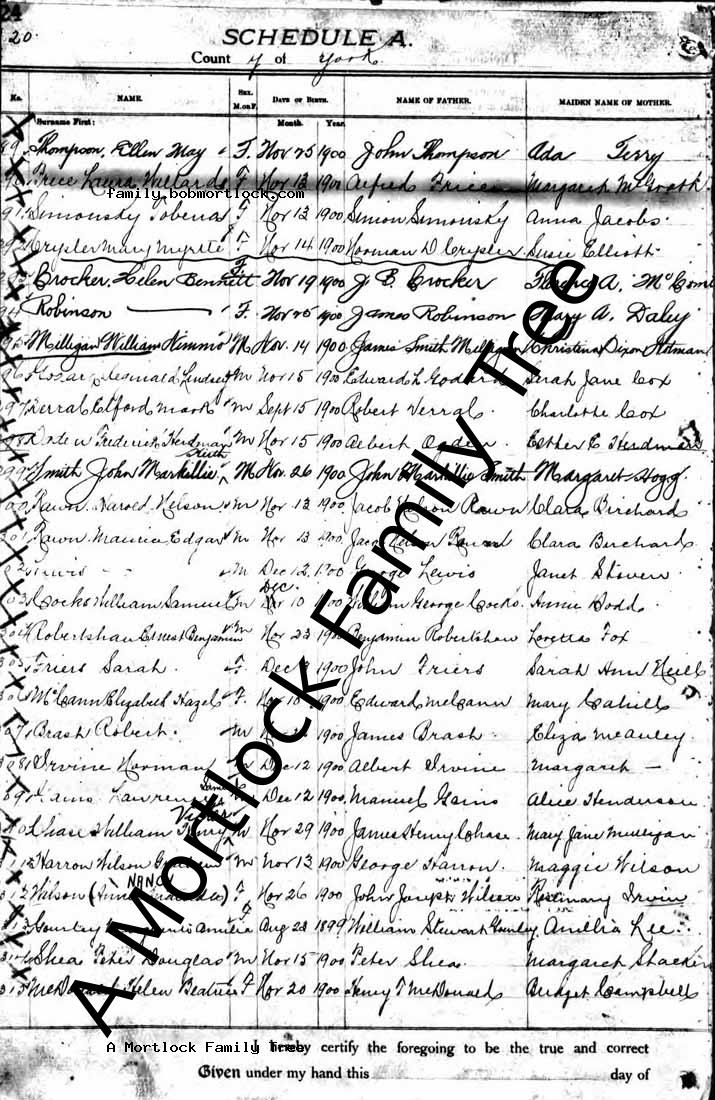 24
20.
SCHEDULE A.
County of York
No. NAME. Sex. M. or F. DATE OF BIRTH. NAME OF FATHER. MAIDEN NAME OF MOTHER.
Surname First: Month. Year.
Thompson, Ellen May F. Nov 25 1900 John Thompson Ada Terry
Price Laura F Nov 13 1900 Alfred Price Margaret
family.bobmortlock.com
Simonsky Tobena F Nov 13 1900 Simon Simonsky Anna Jacobs
Crysler Mary Myrtle F Nov 14 1900 Norman D Crysler Susie Elliott
Crocker, Helen Bennett F. Nov 19 1900 J B Crocker Florence A.
Robinson F. Nov 1900 James Robinson Mary A. Daley
Milligan William Nimmo M Nov. 14 1900 James Smith Milligan Christina Dixon
Reginald Lindsey M Nov 15 1900 Edward L Godard Sarah Jane Cox
Verral Elford Mark M Sept 15 1900 Robert Verral Charlotte Cox
Ogden Frederick Herdman M Nov 15 1900 Albert Ogden Esther E Herdman
Keith
Smith John Markillie M Nov. 26 1900 John Markillie Smith Margaret Hogg
Rawn Harold Nelson M Nov 13 1900 Jacob Nelson Rawn Clara Birchard
Rawn Maurice Edgar M Nov 13 1900 Jacob Nelson Rawn Clara Birchard
Lewis M Dec 12 1900 George Lewis Janet
Dec.
Cocks William Samuel M 10 1900 William George Cocks Annie Dodd
Robertshaw Ernest Benjamin M Nov 23 1900 Benjamin Robertshaw Loretta Fox
Friers Sarah F. Dec 1900 John Friers Sarah Ann Neill
McCann Elizabeth Hazel F. Nov 10 1900 Edward McCann Mary Cahill
Brash Robert M 1900 James Brash Eliza McAuley
Irvine Norman M Dec 12 1900 Albert Irvine Margaret —
Lawrence M Dec 12 1900 Manuel Alice Henderson
Victor
Chase William Henry M Nov 29 1900 James Henry Chase Mary Jane Mulligan
Harron Wilson M Nov 13 1900 George Harron Maggie Wilson
NANCY
Wilson F Nov 26 1900 John Joseph Wilson Rosemary Irvin
Gourley Amelia F Aug 23 1899 William Stewart Gourley Amelia Lee
Shea Peter Douglas M Nov 15 1900 Peter Shea Margaret
McDonald Helen Beatrice F Nov 20 1900 Henry T McDonald Bridget Campbell
A Mortlock Family Tree
A Mortlock Family Tree
I hereby certify the foregoing to be the true and correct
Given under my hand this day of